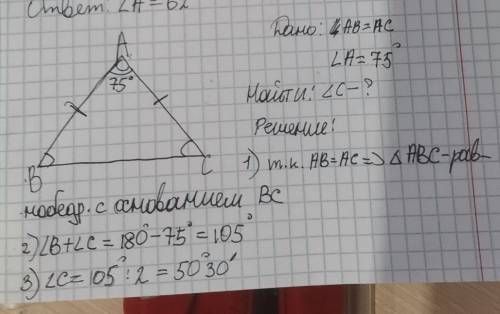 Ответ: ∠A=62
Дано: AB=AC
∠A=75°
Найти: ∠C-?
Решение:
1) т.к. AB=AC=>△ABC-рав-
нобедр. с основанием BC
2) ∠B+∠C=180°-75°=105°
3) ∠C=105°:2=50°30′
A
75°
B
C